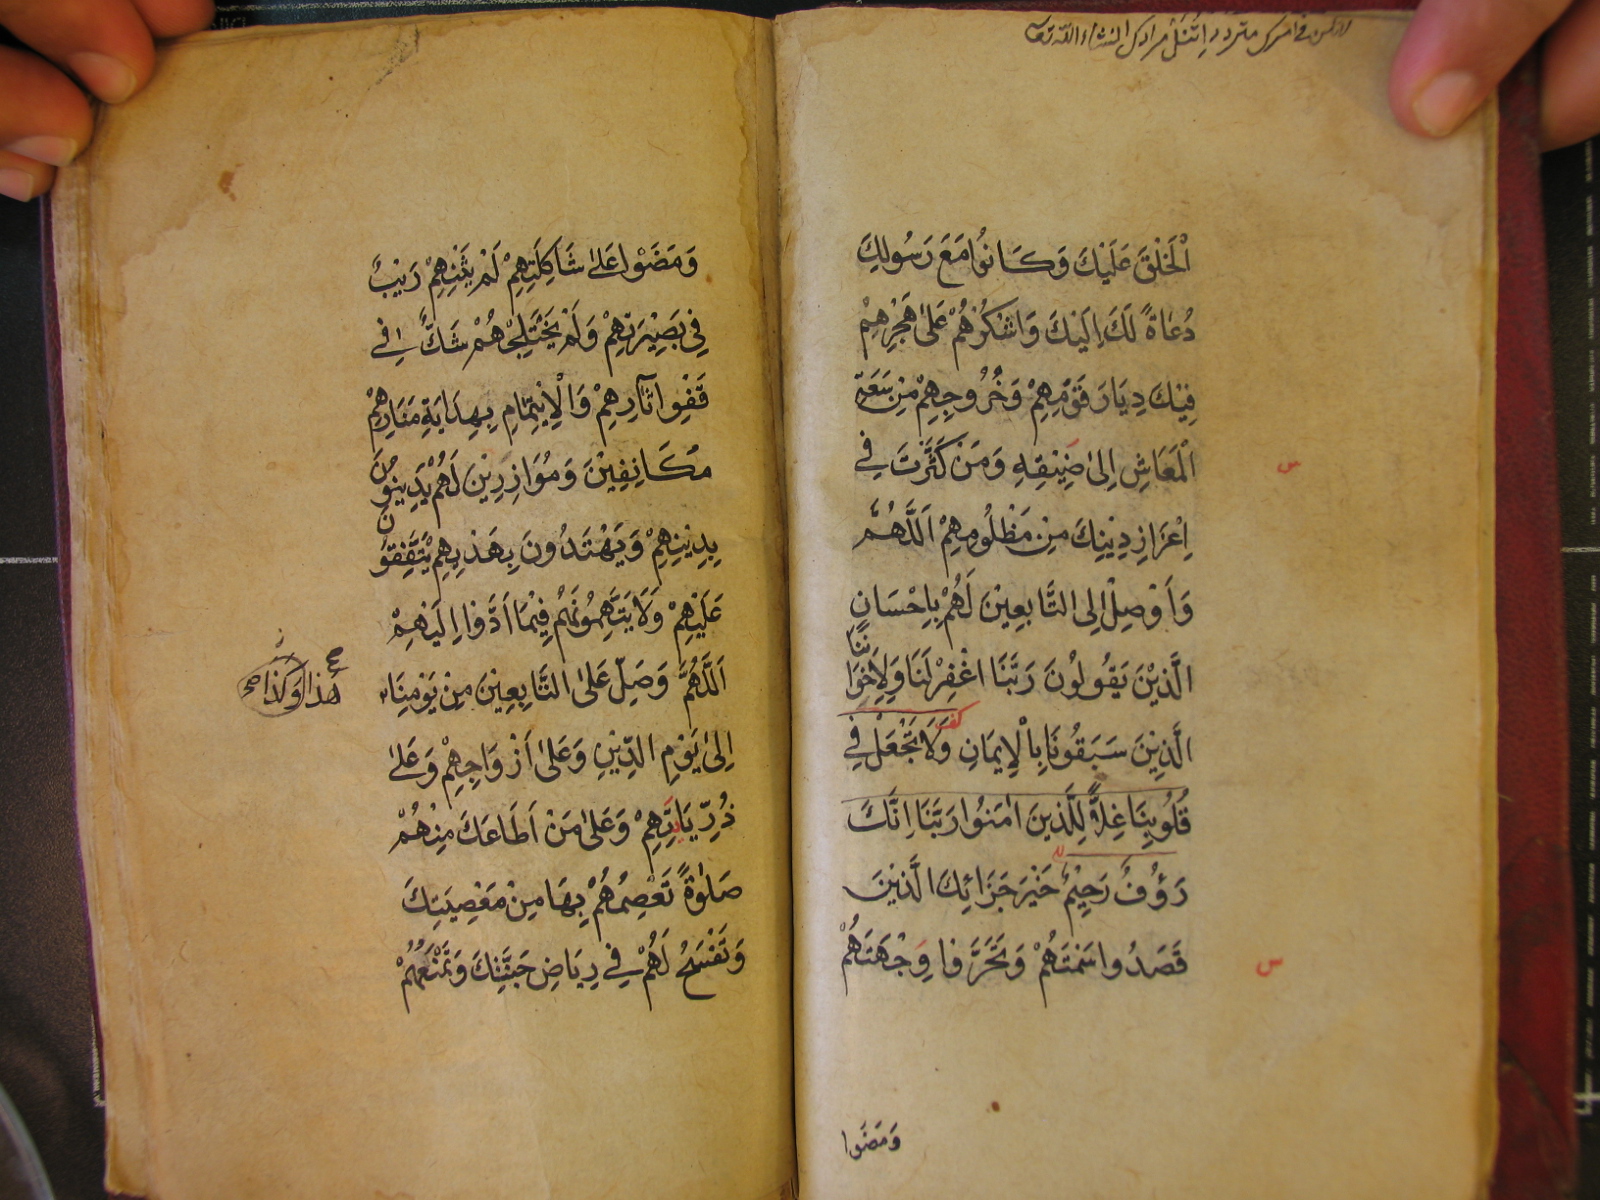 الْخَلْقَ عَلَيْكَ وَكَانُوا مَعَ رَسُولِكَ
دُعَاةً لَكَ اِلَيْكَ وَاشْكُرْهُمْ عَلىٰ هَجْرِهِمْ
فِيْكَ دِيَارَ قَوْمِهِمْ وَخُرُوجِهِمْ مِنْ سَعَةِ
الْمَعَاشِ اِلىٰ ضِيْقِهِ وَمَنْ كَثَّرْتَ فِي
س
اِعْزَازِ دِيْنِكَ مِنْ مَظْلُومِهِمْ اَللّٰهُمَّ
وَاَوْصِلْ اِلى التَّابِعِيْنَ لَهُمْ بِاِحْسَانٍ
الَّذِيْنَ يَقُولُونَ رَبَّنَا اغْفِرْ لَنَا وَلِاِخْوَانِنَا
الَّذِيْنَ سَبَقُونَا بِالْاِيمَانِ وَلَا تَجْعَلْ فِي
قُلُوبِنَا غِلًّا لِلَّذِينَ اٰمَنُوا رَبَّنَا اِنَّكَ
رَؤُفٌ رَحِيْمٌ خَيْرَ جَزَائِكَ الَّذِيْنَ
قَصَدُوا سَمْتَهُمْ وَتَحَرَّوْا وِجْهَتَهُمْ
س
وَمَضَوْا
وَمَضَوْا عَلىٰ شَاكِلَتِهِمْ لَمْ يَثْنِهِمْ رَيْبٌ
فِي بَصِيْرَتِهِمْ وَلَمْ يَخْتَلِجْهُمْ شَكٌّ فِي
قَفْوِ اٰثَارِهِمْ وَالْاِيْتِمَامِ بِهِدَايَةِ مَنَارِهِمْ
مُكَانِفِيْنَ وَمُوَازِرِيْنَ لَهُمْ يَدِيْنُونَ
بِدِيْنِهِمْ وَيَهْتَدُونَ بِهَدْيِهِمْ يَتَّفِقُونَ
عَلَيْهِمْ وَلَا يَتَّهِمُونَهُمْ فِيْمَا اَدَّوْا اِلَيْهِمْ
اَللّٰهُمَّ وَصَلِّ عَلىٰ التَّابِعِيْنَ مِنْ يَوْمِنَا
اِلىٰ يَوْمِ الدِّيْنِ وَعَلىٰ اَزْوَاجِهِمْ وَعَلىٰ
ذُرِّيَاتِهِمْ وَعَلىٰ مَنْ اَطَاعَكَ مِنْهُمْ
صَلوٰةً تَعْصِمُهُمْ بِهَا مِنْ مَعْصِيَتِكَ
وَتَفْسَحُ لَهُمْ فِي رِيَاضِ جَنَّتِكَ وَتَمْنَعُهُمْ